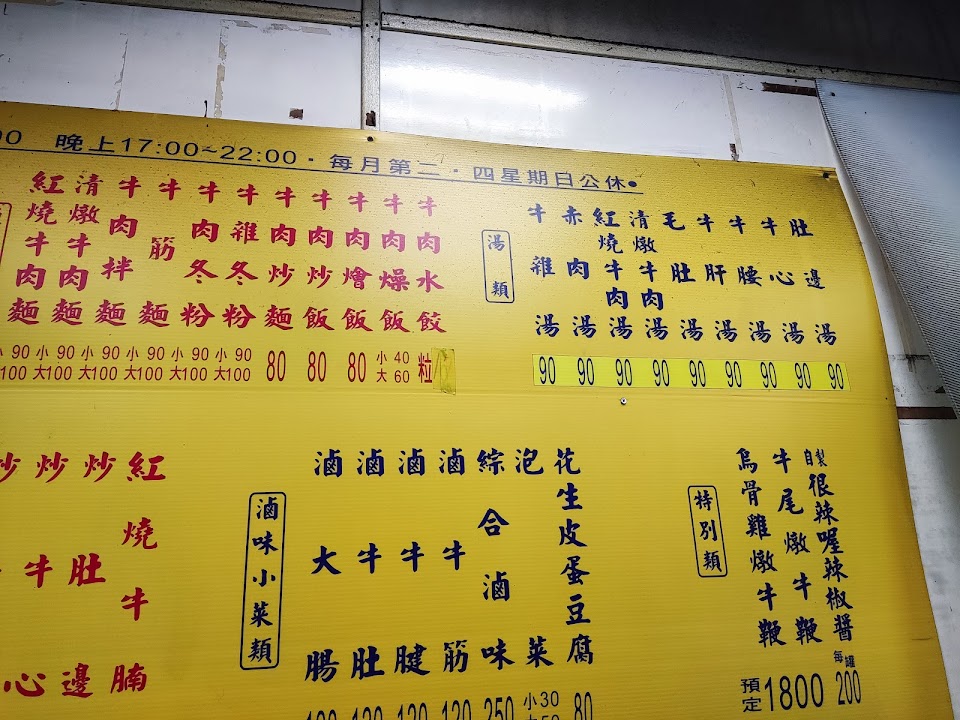 00 晚上17:00~22:00・每月第二・四星期日公休●
紅燒牛肉麵
小90 大100
清燉牛肉麵
小90 大100
牛肉拌麵
小90 大100
牛筋麵
小90 大100
牛肉冬粉
小90 大100
牛雜冬粉
小90 大100
牛肉炒麵
80
牛肉炒飯
80
牛肉燴飯
80
牛肉燥飯
小40 大60
牛肉水餃
粒
湯類
牛雜湯
90
赤肉湯
90
紅燒牛肉湯
90
清燉牛肉湯
90
毛肚湯
90
牛肝湯
90
牛腰湯
90
牛心湯
90
肚邊湯
90
炒牛心
炒肚邊
紅燒牛腩
滷味小菜類
滷大腸
滷牛肚
120
滷牛腱
120
滷牛筋
120
綜合滷味
250
泡菜
小30
花生皮蛋豆腐
80
特別類
烏骨雞燉牛鞭
牛尾燉牛鞭
預定1800
自製很辣喔辣椒醬
每罐200